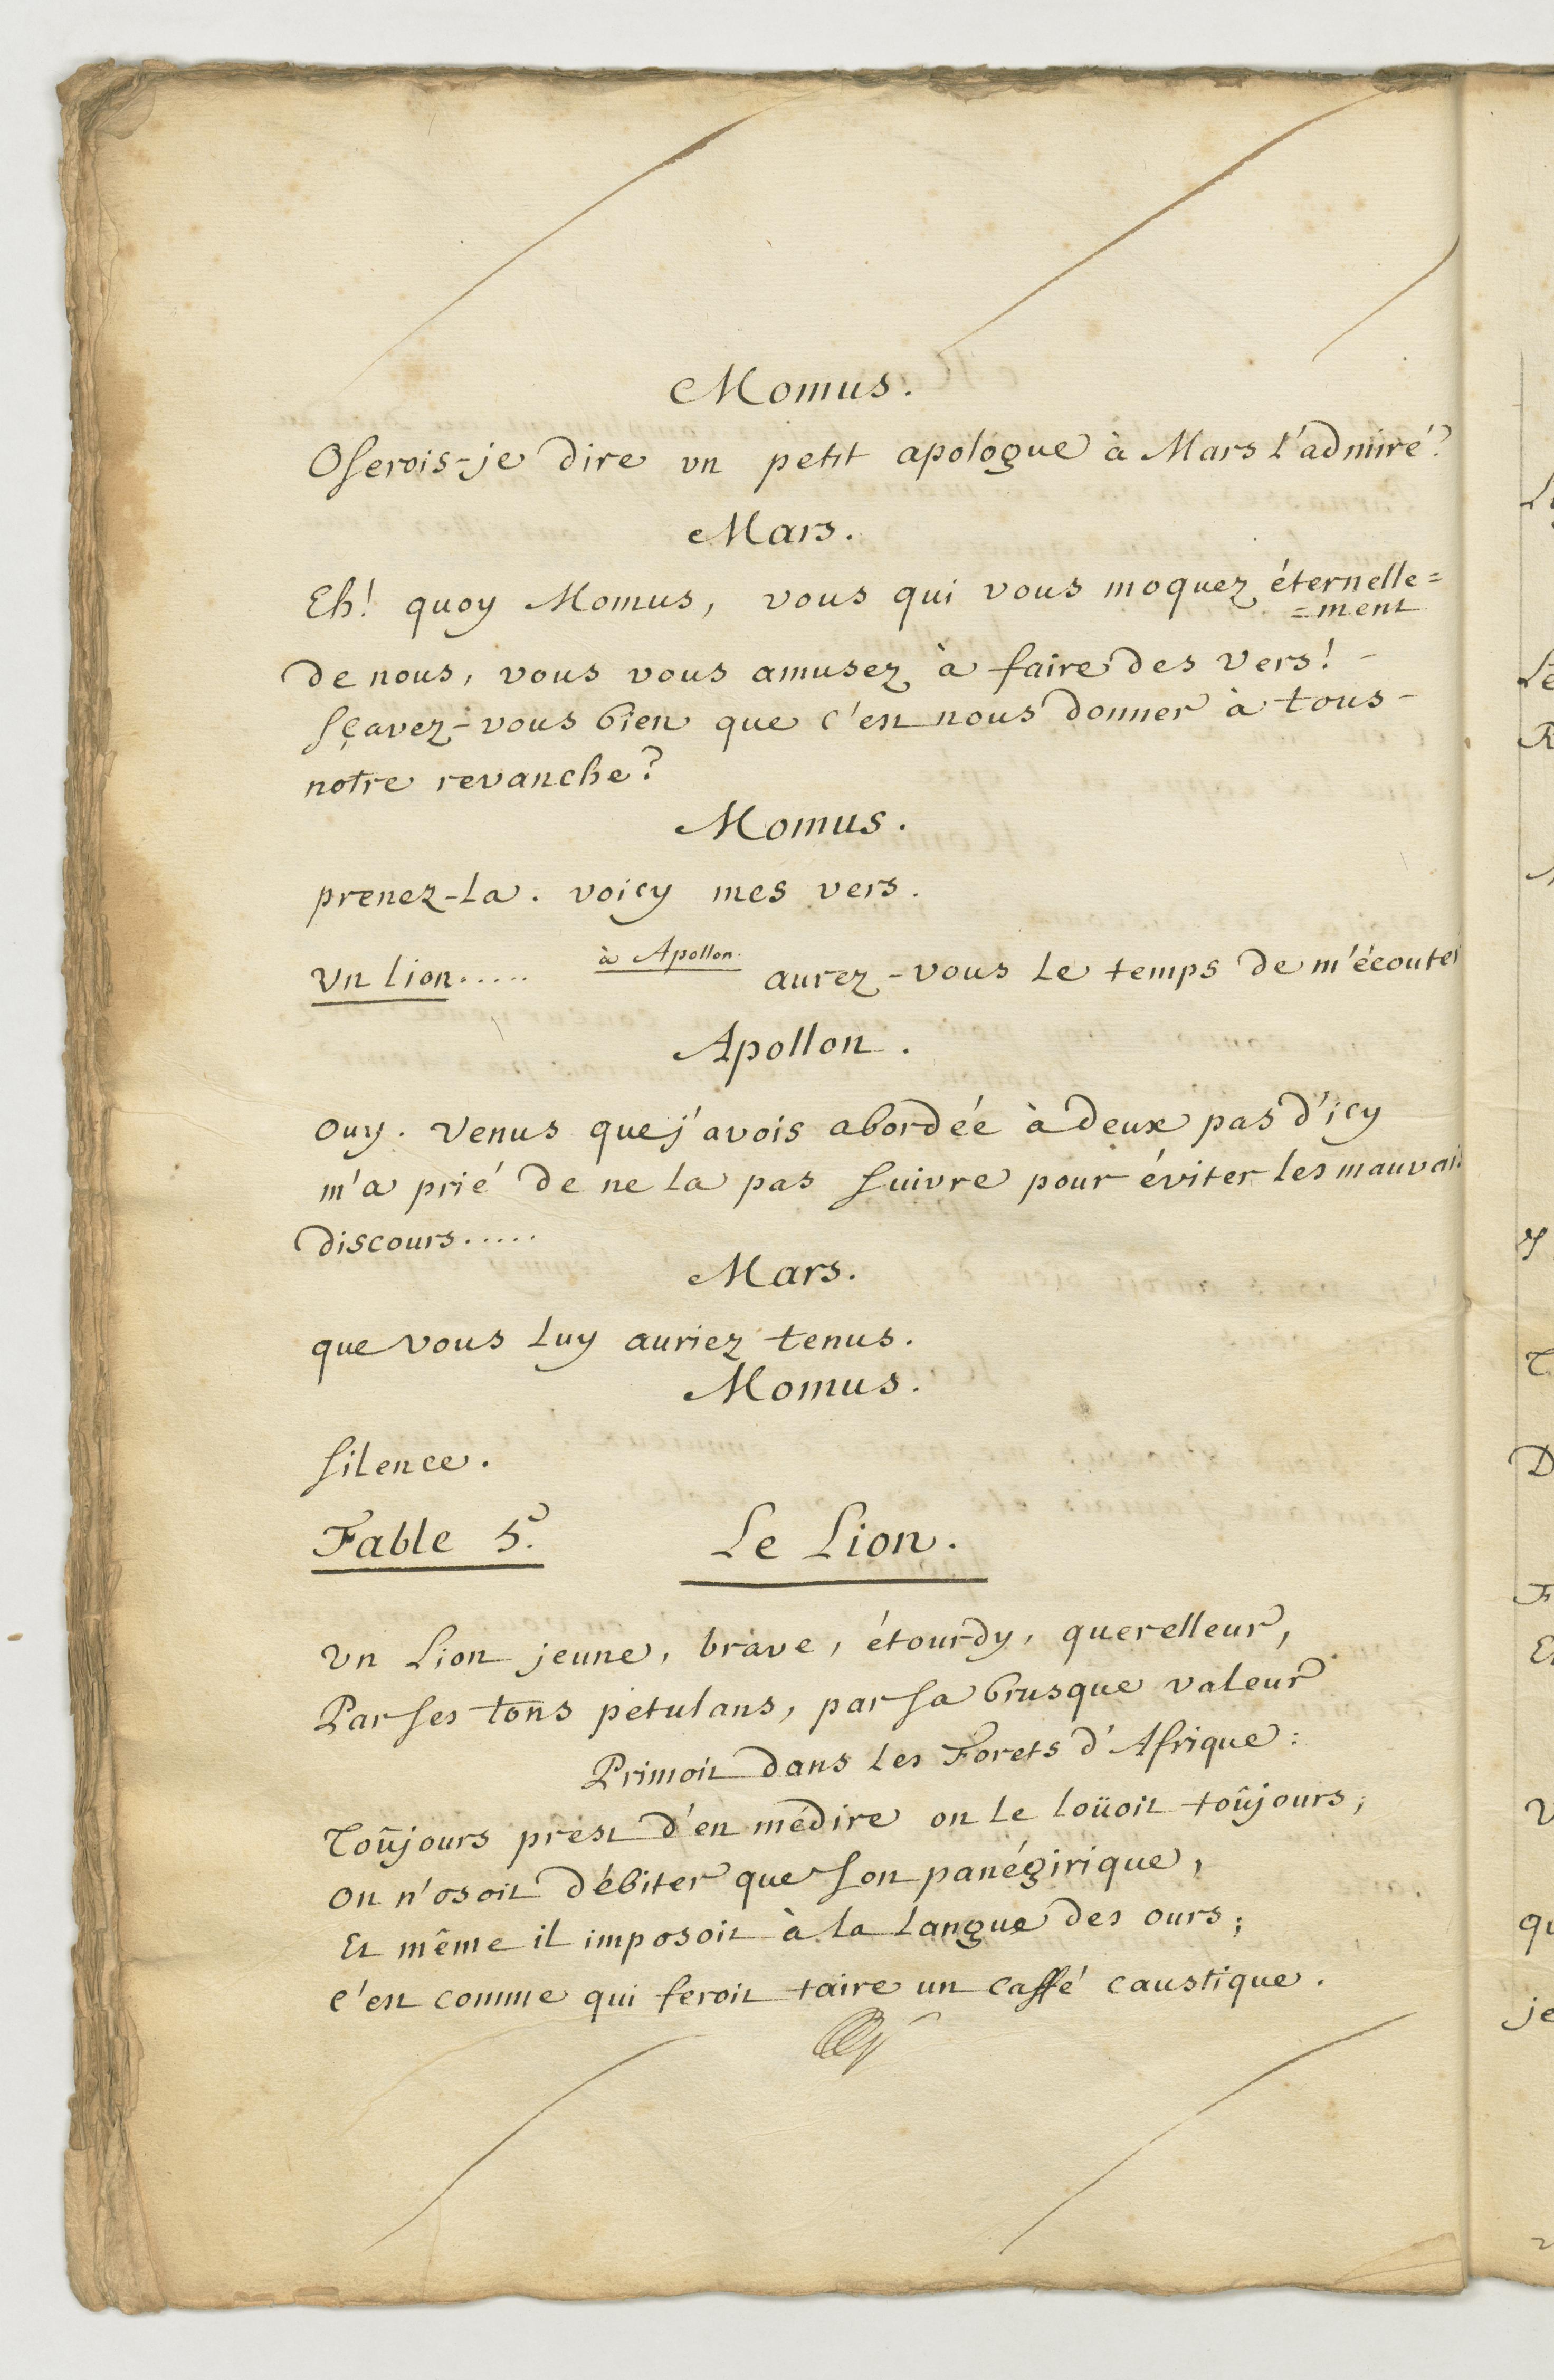 Momus.
Oserois-je dire un petit apologue à Mars l'admiré?
Mars.
Eh! quoy Momus, vous qui vous moquez éternelle=
=ment
de nous, vous vous amusez à faire des vers!
sçavez-vous bien que c'est nous donner à tous
notre revanche?
Momus.
prenez-la. voicy mes vers.
Un lion..... à Apollon. aurez-vous le temps de m'écouter
Apollon.
Ouy. Venus que j'avois abordée à deux pas d'icy
m'a prié de ne la pas suivre pour éviter les mauvais
discours.....
Mars.
que vous luy auriez tenus.
Momus.
silence.
Fable 5.e Le Lion.
Un Lion jeune, brave, étourdy, querelleur,
Par ses tons petulans, par sa brusque valeur
Primoit dans les Forets d'Afrique:
Toûjours prest d'en médire on le loüoit toûjours;
on n'osoit débiter que son panégirique,
Et même il imposoit à la langue des ours;
c'est comme qui feroit taire un caffé caustique.